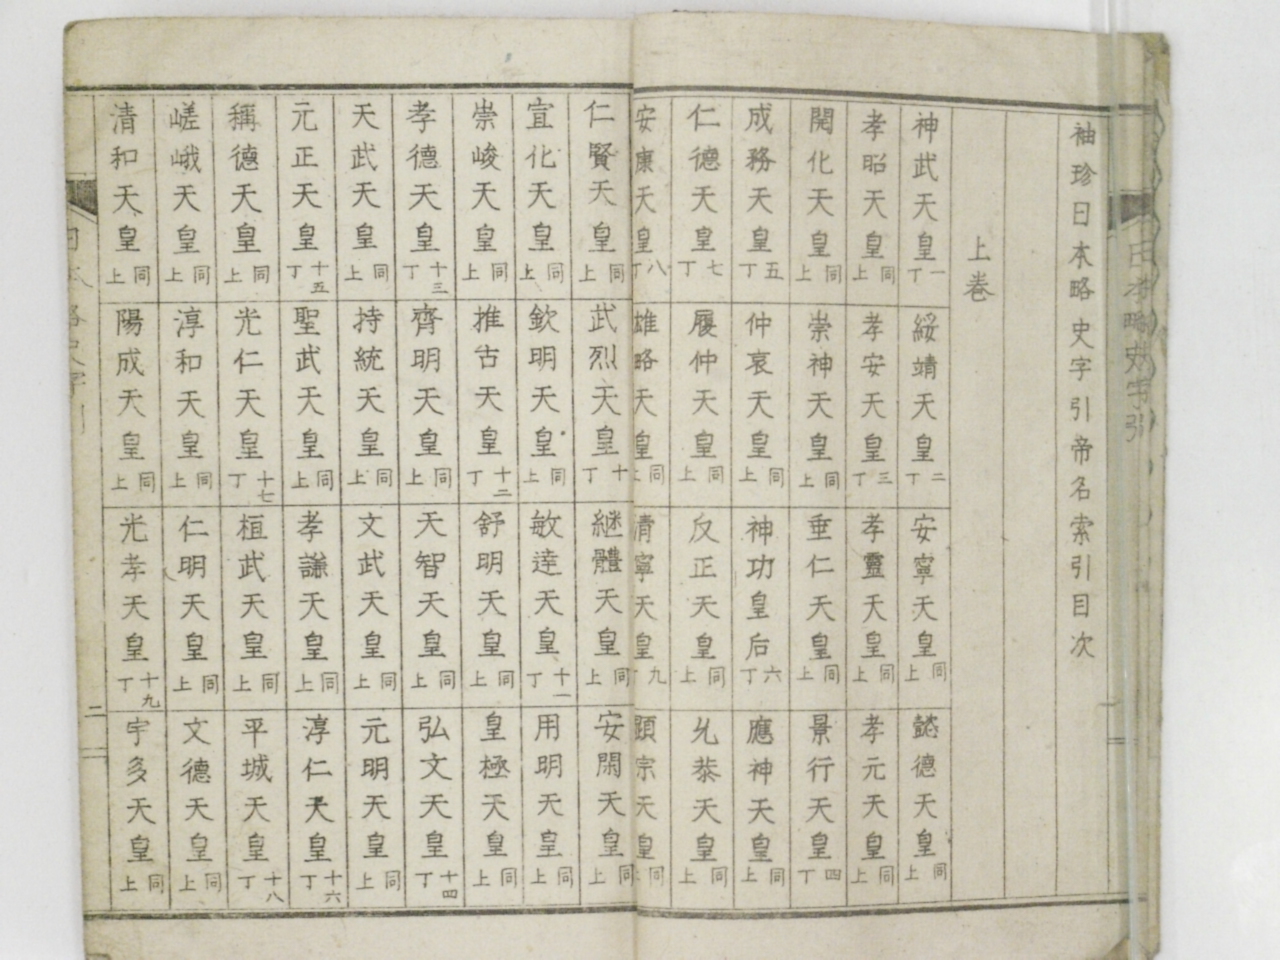 日本略史字引
袖珍日本略史字引帝名索引目次
上巻
神武天皇 一丁 綏靖天皇 二丁 安寧天皇 同上 懿德天皇 同上
孝昭天皇 同上 孝安天皇 三丁 孝靈天皇 同上 孝元天皇 同上
開化天皇 同上 崇神天皇 同上 垂仁天皇 同上 景行天皇 四丁
成務天皇 五丁 仲哀天皇 同上 神功皇后 六丁 應神天皇 同上
仁德天皇 七丁 履仲天皇 同上 反正天皇 同上 允恭天皇 同上
安康天皇 八丁 雄略天皇 同上 清寧天皇 九丁 顕宗天皇 同上
仁賢天皇 同上 武烈天皇 十丁 継體天皇 同上 安閑天皇 同上
宣化天皇 同上 欽明天皇 同上 敏達天皇 十一丁 用明天皇 同上
崇峻天皇 同上 推古天皇 十二丁 舒明天皇 同上 皇極天皇 同上
孝德天皇 十三丁 齊明天皇 同上 天智天皇 同上 弘文天皇 十四丁
天武天皇 同上 持統天皇 同上 文武天皇 同上 元明天皇 同上
元正天皇 十五丁 聖武天皇 同上 孝謙天皇 同上 淳仁天皇 十六丁
稱德天皇 同上 光仁天皇 十七丁 桓武天皇 同上 平城天皇 十八丁
嵯峨天皇 同上 淳和天皇 同上 仁明天皇 同上 文德天皇 同上
清和天皇 同上 陽成天皇 同上 光孝天皇 十九丁 宇多天皇 同上
日本略史字引 二